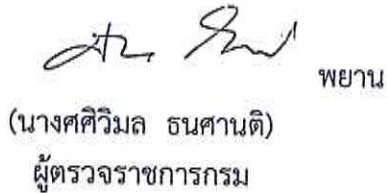 พยาน
(นางศศิวิมล ธนศานติ)
ผู้ตรวจราชการกรม